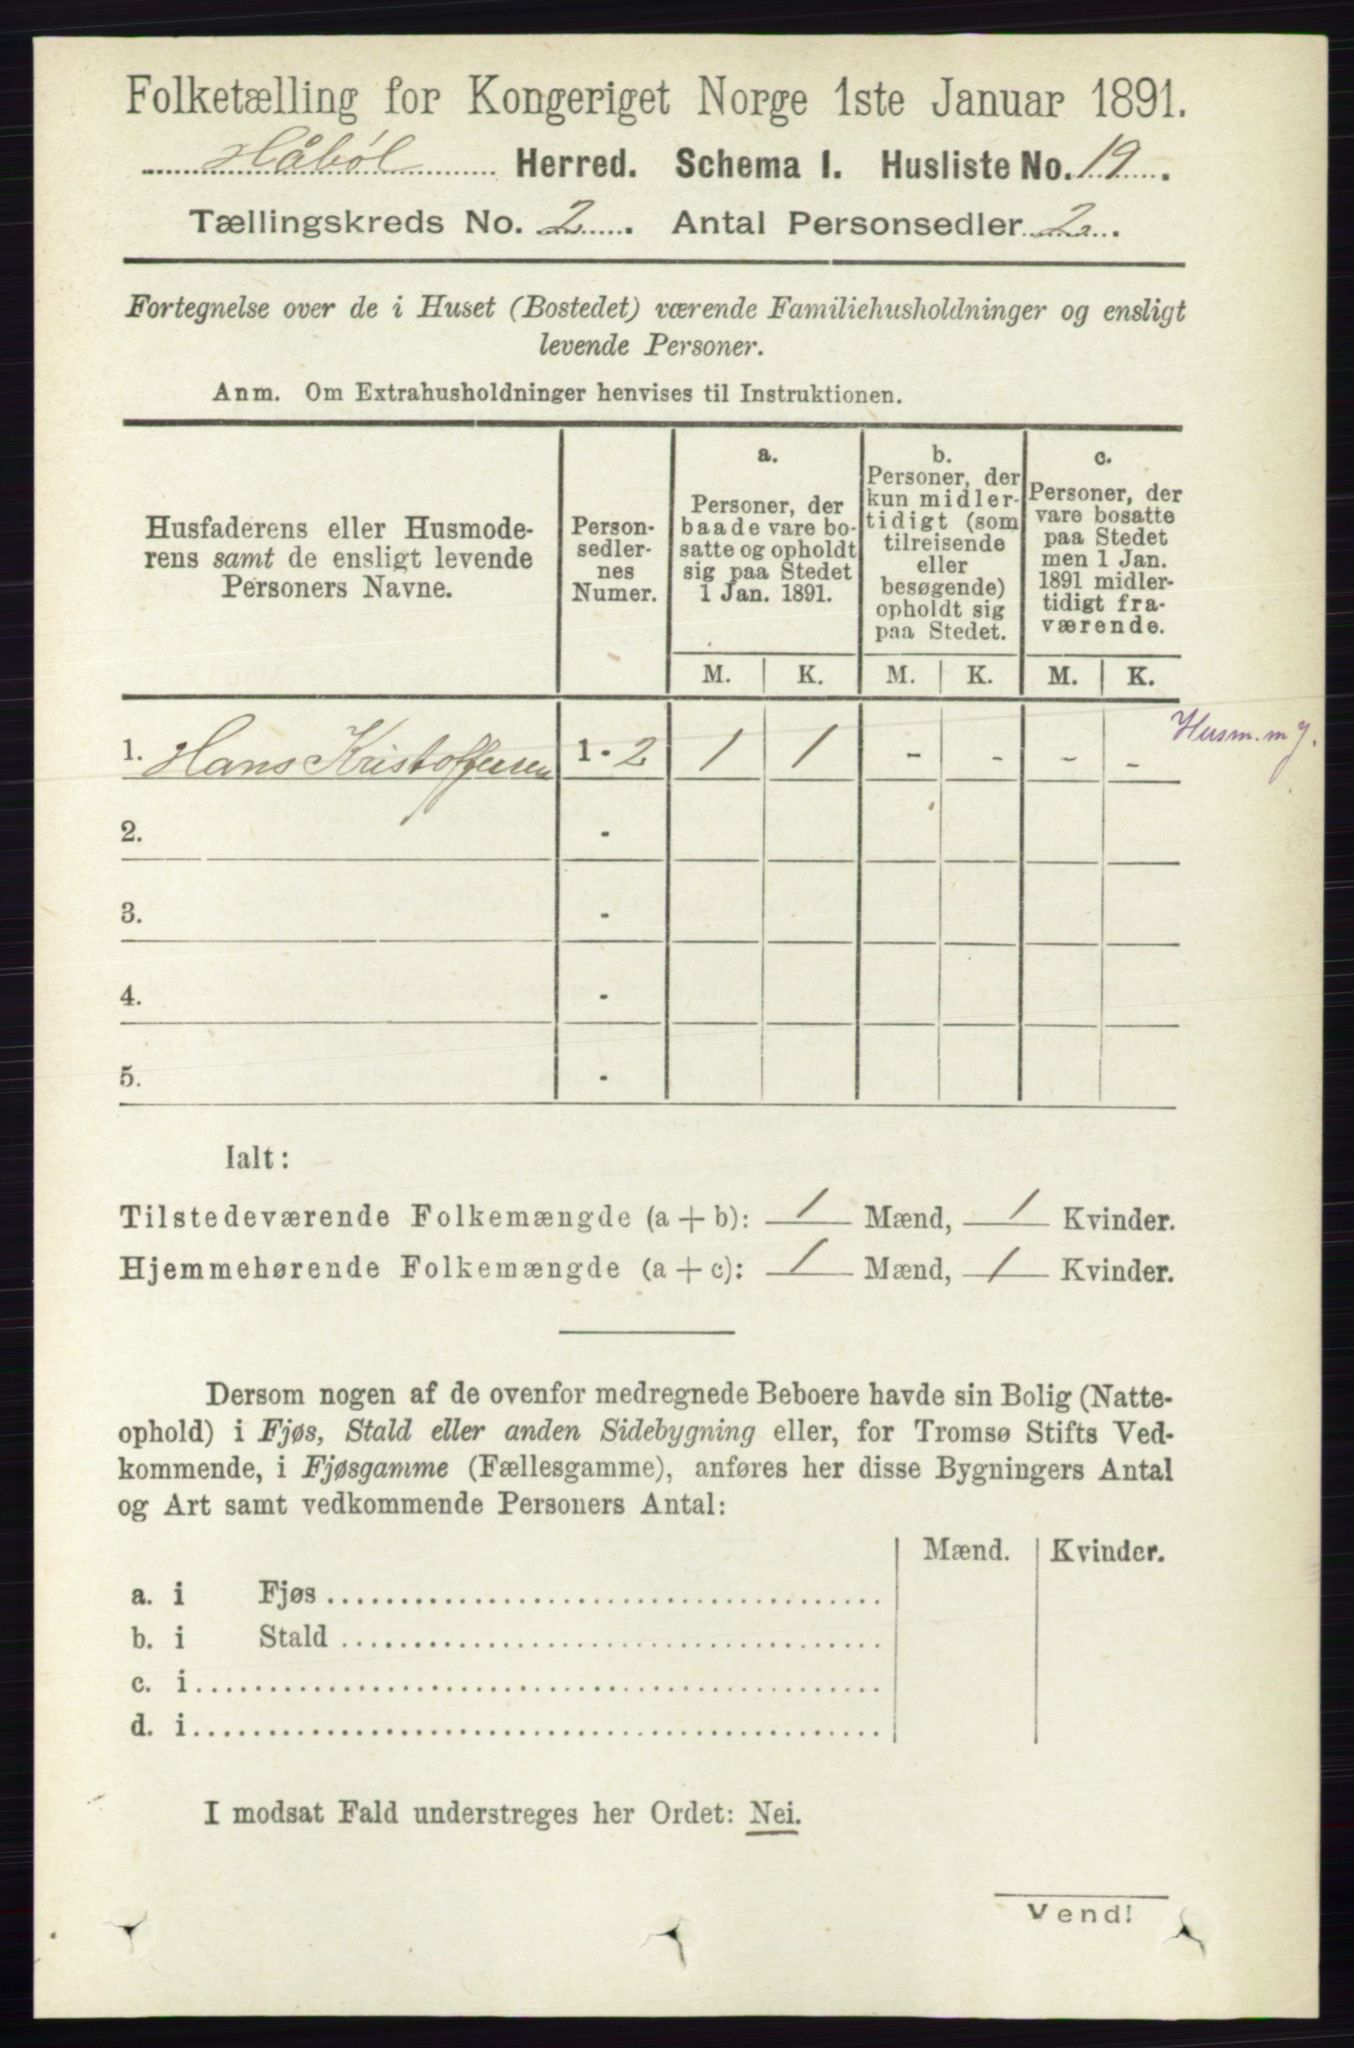 Folketælling for Kongeriget Norge 1ste Januar 1891.
Håbøl Herred. Schema I. Husliste No. 19.
Tællingskreds No. 2. Antal Personsedler 2.
Fortegnelse over de i Huset (Bostedet) værende Familiehusholdninger og ensligt
levende Personer.
Anm. Om Extrahusholdninger henvises til Instruktionen.
Husfaderens eller Husmode-
rens samt de ensligt levende
Personers Navne.
Person-
sedler-
nes
Numer.
a.
Personer, der
baade vare bo-
satte og opholdt
sig paa Stedet
1 Jan. 1891.
b.
Personer, der
kun midler-
tidigt (som
tilreisende
eller
besøgende)
opholdt sig
paa Stedet.
c.
Personer, der
vare bosatte
paa Stedet
men 1 Jan.
1891 midler-
tidigt fra-
værende.
M. K. M. K. M. K.
1. Hans Kristoffersen 1 - 2 1 1 - - - - Husm. m j.
2. -
3. -
4. -
5. -
Ialt:
Tilstedeværende Folkemængde (a + b): 1 Mænd, 1 Kvinder.
Hjemmehørende Folkemængde (a + c): 1 Mænd, 1 Kvinder.
Dersom nogen af de ovenfor medregnede Beboere havde sin Bolig (Natte-
ophold) i Fjøs, Stald eller anden Sidebygning eller, for Tromsø Stifts Ved-
kommende, i Fjøsgamme (Fællesgamme), anføres her disse Bygningers Antal
og Art samt vedkommende Personers Antal:
Mænd. Kvinder.
a. i Fjøs
b. i Stald
c. i
d. i
I modsat Fald understreges her Ordet: Nei.
Vend!